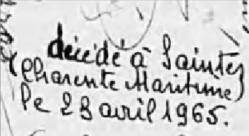 décédé à Saintes
(Charente Maritime)
le 28 avril 1965.